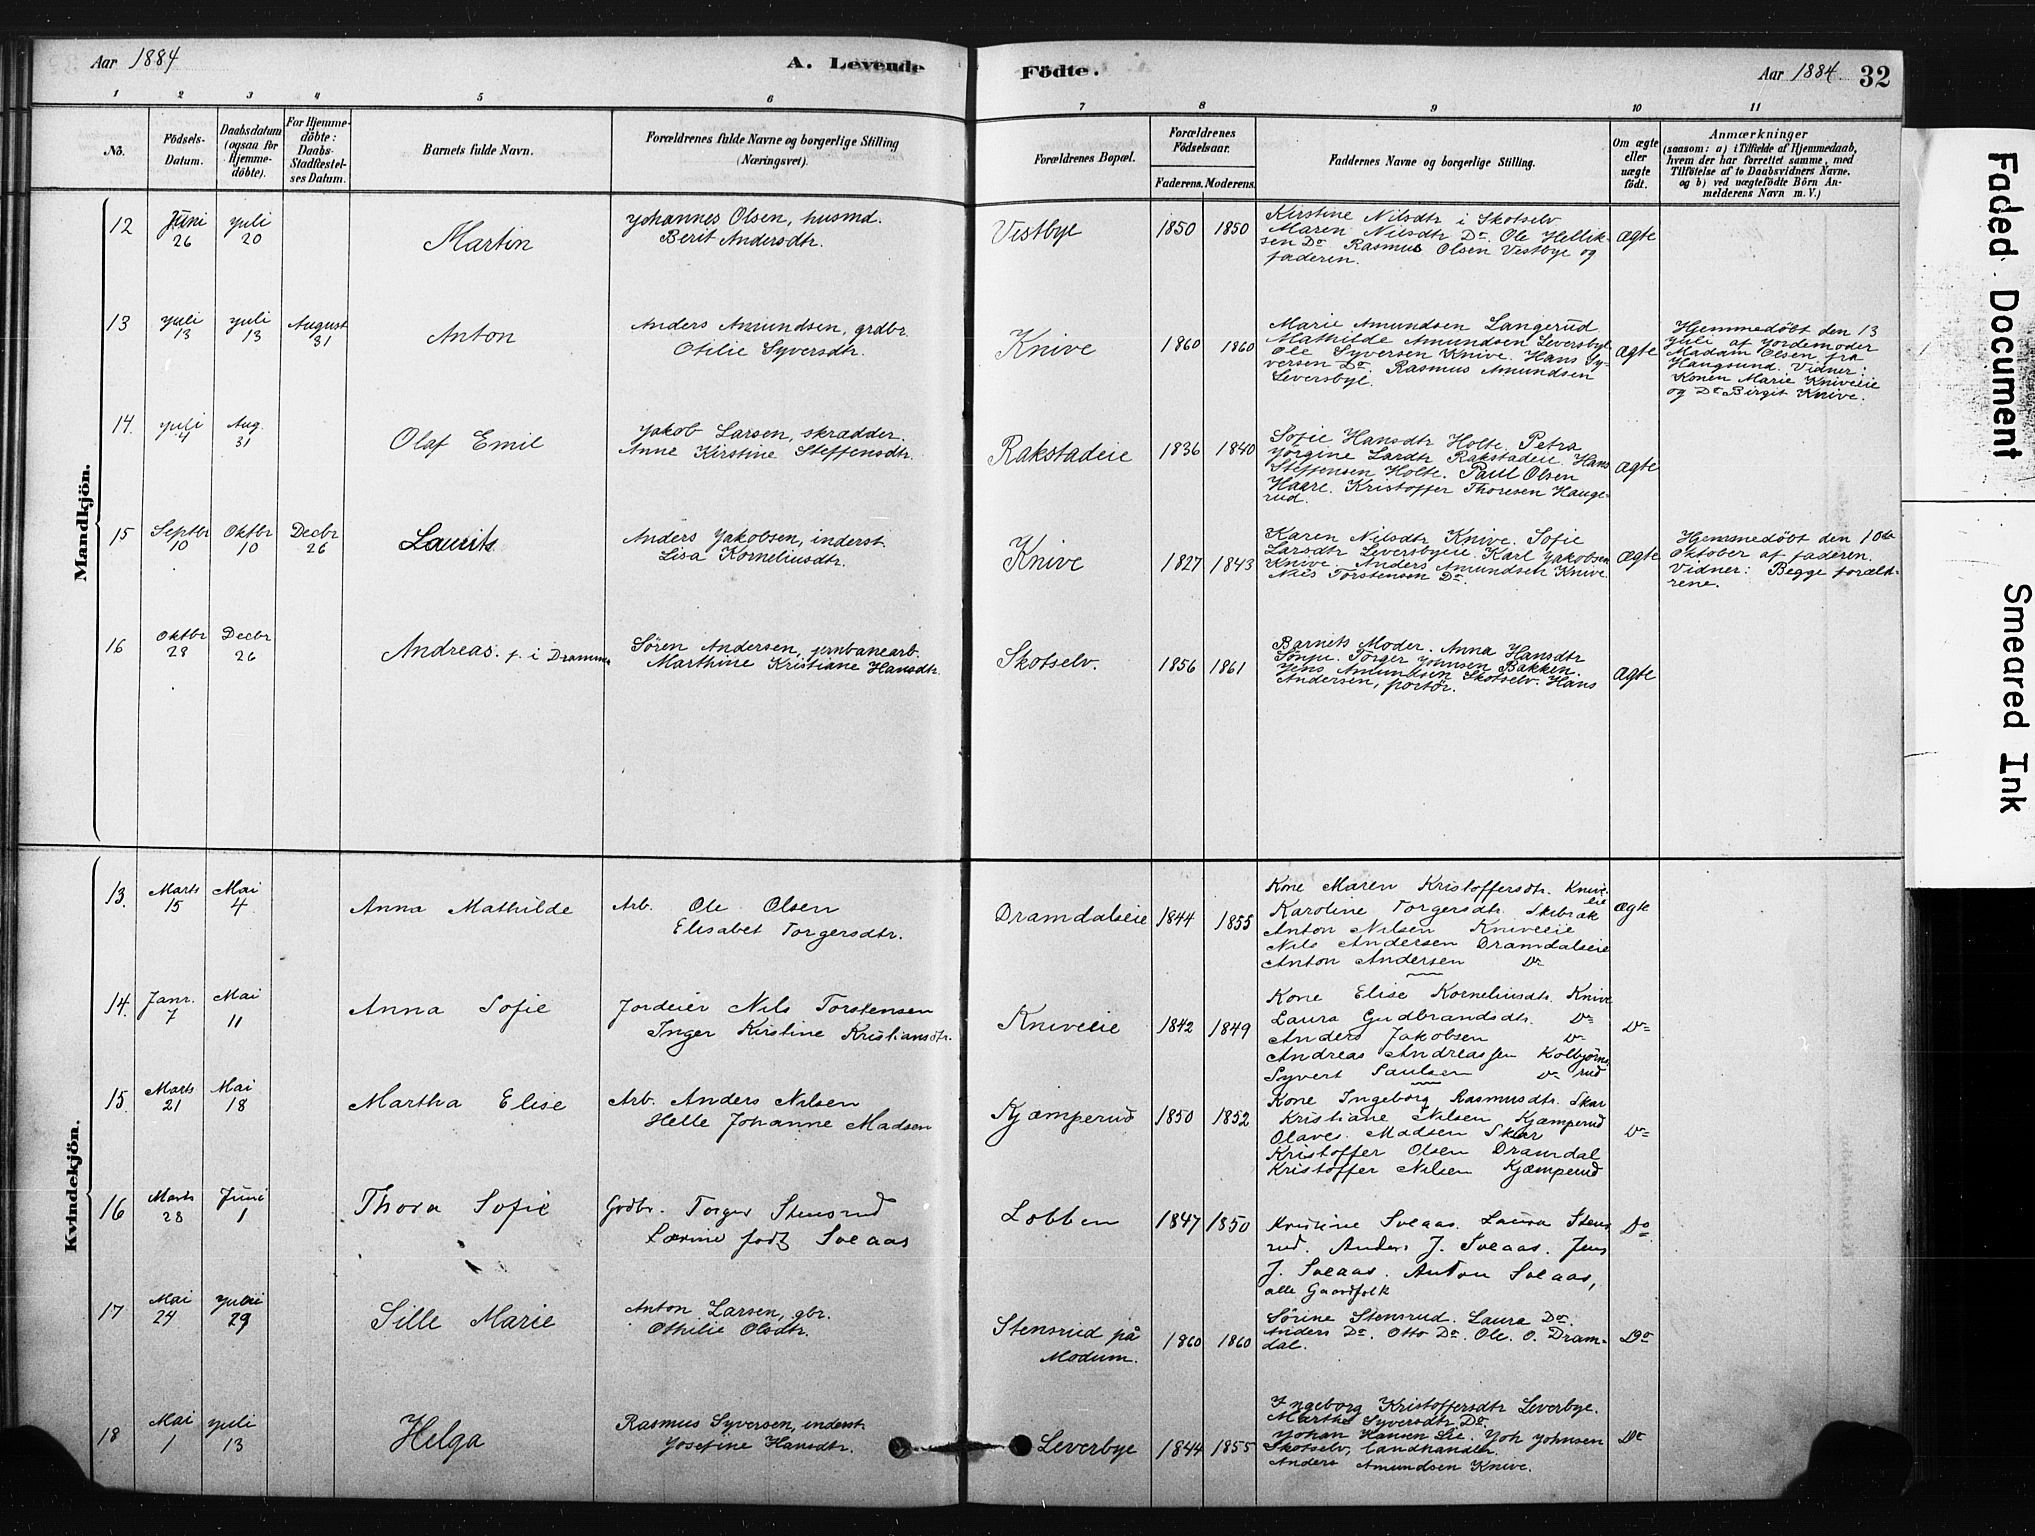 Aar 1884
A. Levende
Födte.
Aar 1884
32
1 2 3 4 5 6 7 8 9 10 11
No.
Födsels-
Datum.
Daabsdatum
(ogsaa for
Hjemme-
döbte).
For Hjemme-
döbte:
Daabs-
Stadfæstel-
ses Datum.
Barnets fulde Navn.
Forældrenes fulde Navne og borgerlige Stilling
(Næringsvei).
Forældrenes Bopæl.
Forældrenes
Födselsaar.
Faderens. Moderens.
Faddernes Navne og borgerlige Stilling.
Om ægte
eller
uægte
födt.
Anmærkninger
(saasom: a) i Tilfælde af Hjemmedaab,
hvem der har forrettet samme, med
Tilföielse af to Daabsvidners Navne,
og b) ved uægtefödte Börn An-
melderens Navn m. V.)
Mandkjön.
12
Juni
26
Juli
20
Martin
Johannes Olsen, husmd.
Berit Andersdtr.
Vestbye
1850 1850
Kirstine Nilsdtr i Skotselv
Maren Nilsdtr Do. Ole Hellik-
sen Do. Rasmus Olsen Vestbye og
faderen.
Ægte
13
Juli
13
Juli
13
August
31
Anton
Anders Amundsen, grdbr.
Otilie Syversdtr.
Knive
1860 1860
Marie Amundsen Langerud
Mathilde Amundsen Leversbye
Ole Syversen Knive. Hans Sy-
versen Do. Rasmus Amundsen
Leversbye.
Ægte
Hjemmedöbt den 13
Juli af Jordemoder
Madam Olsen fra
Haugsund. Vidner:
Konen Marie Kniveeie
og Do Birgit Knive.
14.
Juli
4
Aug.
31
Olaf Emil
Jakob Larsen, skrædder.
Anne Kirstine Steffensdtr.
Rakstadeie
1836 1840
Sofie Hansdtr Holte. Petra
Jorgine Larsdtr Rakstadeie. Hans
Steffensen Holte. Paul Olsen
Haare. Kristoffer Thoresen Hauge-
rud.
Ægte
15
Septbr
10
Oktbr
10
Decbr
26
Laurits
Anders Jakobsen, inderst.
Lisa Korneliusdtr.
Knive
1827 1843
Karen Nilsdtr Knive. Sofie
Larsdtr Leversbyeie. Karl Jakobsen
Knive. Anders Amundsen Knive.
Nils Torstensen Do.
Ægte
Hjemmedöbt den 10de
Oktober af faderen.
Vidner: Begge foræld-
rene.
16
Oktbr
28
Decbr
26
Andreas. f. i Dramme
Sören Andersen, jernbanearb.
Marthine Kristiane Hansdtr.
Skotselv.
1856 1861
Barnets Moder. Anna Hansdtr
Torger Johnsen Bakken.
Jens Amundsen Skotselv. Hans
Andersen, portör.
Ægte
Kvindekjön.
13.
Marts
15
Mai
4
Anna Mathilde
Arb. Ole Olsen
Elisabet Torgersdtr.
Dramdalseie
1844 1855
Kone Maren Kristoffersdtr. Knive-
eie
Karoline Torgersdtr. Skibræk
Anton Nilsen Kniveeie
Nils Andersen Dramdalseie
Anton Andersen Do
Ægte
14.
Janr.
7
Mai
11
Anna Sofie
Jordeier Nils Torstensen
Inger Kristine Kristiansdtr.
Kniveeie
1842 1849
Kone Elise Korneliusdtr. Knive
Laura Gudbrandsdtr. Do
Anders Jakobsen Do
Andreas Andreassen Kolbjörns
Syvert Paulsen Do rud
Do
15.
Marts
21
Mai
18
Martha Elise
Arb. Anders Nilsen
Helle Johanne Madsen
Kjæmperud
1850 1852
Kone Ingeborg Rasmusdtr. Skar
Kristiane Nilsen Kjæmperud
Olaves Madsen Skar
Kristoffer Olsen Dramdal
Kristoffer Nilsen Kjæmperud
Do
16
Marts
28
Juni
1
Thora Sofie
Grdbr. Torger Stensrud
Lovine född Solaas
Lobben
1847 1850
Kristine Solaas. Laura Stens
rud. Anders J. Solaas. Jens
J. Solaas. Anton Solaas,
alle Gaardfolk
Do
17
Mai
24
Juni
29
Sille Marie
Anton Larsen, gbr.
Othilie Olsdtr.
Stensrud på
Modum.
1860 1860
Sörine Stensrud. Laura Do.
Anders Do. Otto Do. Ole. O. Dram-
dal.
Do
18
Mai
1
Juli
13
Helga
Rasmus Syversen, inderst.
Josefine Hansdtr.
Leverbye
1844 1855
Ingeborg Kristoffersdtr Leverbye.
Marthe Syversdtr Do.
Johan Hansen Lie. Joh Johnsen
Skotselv, landhandler.
Anders Amundsen Knive.
Do
Faded Document
Smeared Ink